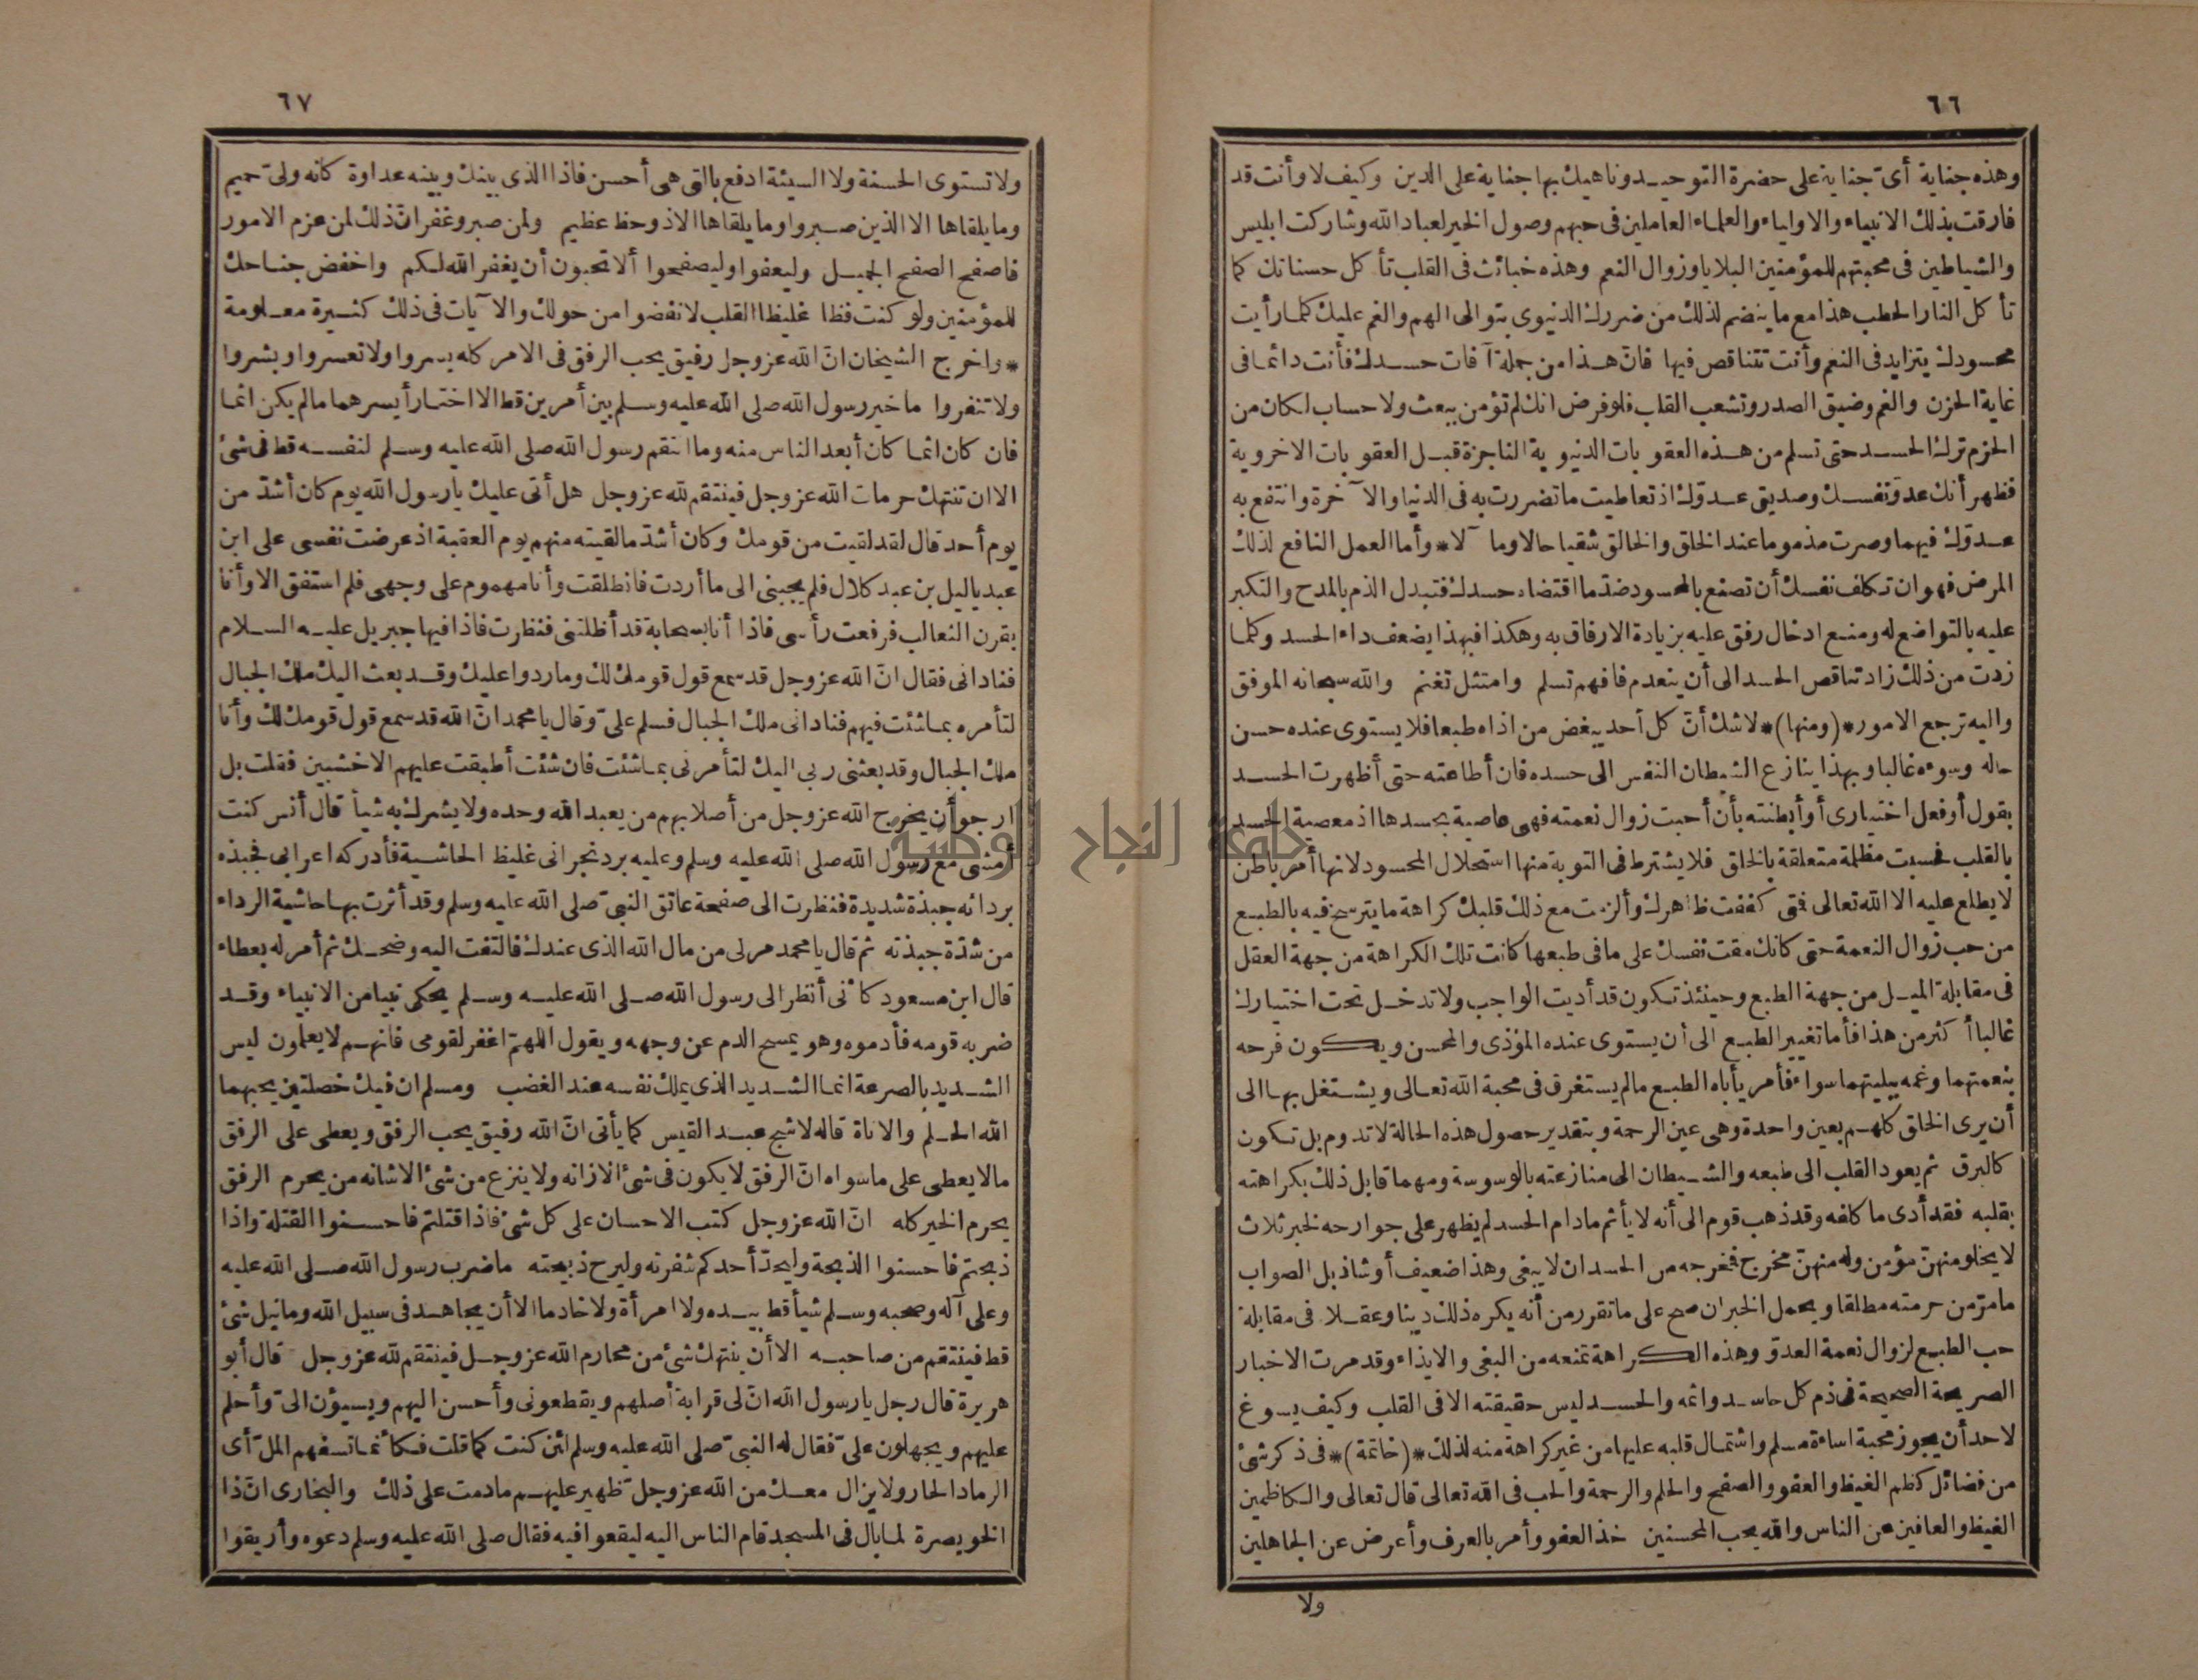 ٦٦
وهذه جناية أىّ جناية على حضرة التوحيد وناهيك بها جناية على الدين وكيف لا وأنت قد
فارقت بذلك الانبياء والاولياء والعلماء العاملين فى حبهم وصول الخير لعباد الله وشاركت ابليس
والشياطين فى محبتهم للمؤمنين البلايا وزوال النعم وهذه خبائث فى القلب تأكل حسناتك كما
تأكل النار الحطب هذا مع ما ينضم لذلك من ضررك الدنيوى بتوالى الهم والغم عليك كلما رأيت
محسودك يتزايد فى النعم وأنت تتناقص فيها فانّ هذا من جملة آفات حسدك فأنت دائما فى
غاية الحزن والغم وضيق الصدر وتشعب القلب فلو فرض انك لم تؤمن ببعث ولا حساب لكان من
الحزم ترك الحسد حتى تسلم من هذه العقوبات الدنيوية الناجزة قبل العقوبات الاخروية
فظهر أنك عدوّ نفسك وصديق عدوّك اذ تعاطيت ما تضررت به فى الدنيا والآخرة وانتفع به
عدوّك فيهما وصرت مذموما عند الخلق والخالق شقيا حالا وما ٓلا * وأما العمل النافع لذلك
المرض فهو ان تكلف نفسك أن تصنع بالمحسود ضدّ ما اقتضاه حسدك فتبدل الذم بالمدح والتكبر
عليه بالتواضع له ومنع ادخال رفق عليه بزيادة الارفاق به وهكذا فبهذا يضعف داء الحسد وكلما
زدت من ذلك زاد تناقص الحسد الى أن ينعدم فافهم تسلم وامتثل تغنم والله سبحانه الموفق
واليه ترجع الامور *(ومنها)* لا شك أنّ كل أحد يبغض من اذاه طبعا فلا يستوى عنده حسن
حاله وسوءه غالبا وبهذا ينازع الشيطان النفس الى حسده فان أطاعته حتى أظهرت الحسد
بقول أو فعل اختيارى أو أبطنته بأن أحبت زوال نعمته فهى عاصية بحسدها اذ معصية الحسد
بالقلب فحسبت مظلمة متعلقة بالخلق فلا يشترط فى التوبة منها استحلال المحسود لانها أمر باطن
لا يطلع عليه الا الله تعالى فمتى كففت ظاهرك وألزمت مع ذلك قلبك كراهة ما يترسخ فيه بالطبع
من حب زوال النعمة حتى كانك مقت نفسك على ما فى طبعها كانت تلك الكراهة من جهة العقل
فى مقابلة الميل من جهة الطبع وحينئذ تكون قد أديت الواجب ولا تدخل تحت اختيارك
غالبا أكثر من هذا فأما تغيير الطبع الى أن يستوى عنده المؤذى والمحسن ويكون فرحه
بنعمتهما وغمه ببليتهما سواء فأمر يأباه الطبع ما لم يستغرق فى محبة الله تعالى ويشتغل بها الى
أن يرى الخلق كلهم بعين واحدة وهى عين الرحمة وبتقدير حصول هذه الحالة لا تدوم بل تكون
كالبرق ثم يعود القلب الى طبعه والشيطان الى منازعته بالوسوسة ومهما قابل ذلك بكراهته
بقلبه فقد أدى ما كلفه وقد ذهب قوم الى أنه لا يأثم مادام الحسد لم يظهر على جوارحه لخبر ثلاث
لا يخلو منهنّ مؤمن وله منهنّ مخرج فمخرجه من الحسد ان لا يبغى وهذا ضعيف أو شاذ بل الصواب
ما مرّ من حرمته مطلقا ويحمل الخبر ان صح على ما تقرر من أنه يكره ذلك دينا وعقلا فى مقابلة
حب الطبع لزوال نعمة العدوّ وهذه الكراهة تمنعه من البغى والايذاء وقد مرت الاخبار
الصريحة الصحيحة فى ذم كل حاسد واثمه والحسد ليس حقيقته الا فى القلب وكيف يسوغ
لاحد أن يجوز محبة اساءة مسلم واشتمال قلبه عليها من غير كراهة منه لذلك *(خاتمة)* فى ذكر شئ
من فضائل كظم الغيظ والعفو والصفح والحلم والرحمة والحب فى الله تعالى قال تعالى والكاظمين
الغيظ والعافين عن الناس والله يحب المحسنين خذ العفو وأمر بالعرف وأعرض عن الجاهلين
ولا
٦٧
ولا تستوى الحسنة ولا السيئة ادفع بالتى هى أحسن فاذا الذى بينك وبينه عداوة كانه ولىّ حميم
وما يلقاها الا الذين صبروا وما يلقاها الا ذو حظ عظيم ولمن صبر وغفر انّ ذلك لمن عزم الامور
فاصفح الصفح الجميل وليعفوا وليصفحوا ألا تحبون أن يغفر الله لكم واخفض جناحك
للمؤمنين ولو كنت فظا غليظ القلب لانفضوا من حولك والآيات فى ذلك كثيرة معلومة
* واخرج الشيخان انّ الله عز وجل رفيق يحب الرفق فى الامر كله يسروا ولا تعسروا وبشروا
ولا تنفروا ما خير رسول الله صلى الله عليه وسلم بين أمرين قط الا اختار أيسرهما ما لم يكن اثما
فان كان اثما كان أبعد الناس منه وما انتقم رسول الله صلى الله عليه وسلم لنفسه قط فى شئ
الا ان تنتهك حرمات الله عز وجل فينتقم لله عز وجل هل أتى عليك يا رسول الله يوم كان أشدّ من
يوم أحد قال لقد لقيت من قومك وكان أشدّ ما لقيته منهم يوم العقبة اذ عرضت نفسى على ابن
عبد ياليل بن عبد كلال فلم يجبنى الى ما أردت فانطلقت وأنا مهموم على وجهى فلم استفق الا وأنا
بقرن الثعالب فرفعت رأسى فاذا أنا بسحابة قد أظلتنى فنظرت فاذا فيها جبريل عليه السلام
فنادانى فقال انّ الله عز وجل قد سمع قول قومك لك وما ردوا عليك وقد بعث اليك ملك الجبال
لتأمره بما شئت فيهم فنادانى ملك الجبال فسلم علىّ وقال يا محمد انّ الله قد سمع قول قومك لك وأنا
ملك الجبال وقد بعثنى ربى اليك لتأمرنى بما شئت فان شئت أطبقت عليهم الاخشبين فقلت بل
ارجو أن يخرج الله عز وجل من أصلابهم من يعبد الله وحده ولا يشرك به شيأ قال أنس كنت
أمشى مع رسول الله صلى الله عليه وسلم وعليه برد نجرانى غليظ الحاشية فأدركه اعرابى فجبذه
بردائه جبذة شديدة فنظرت الى صفحة عاتق النبىّ صلى الله عليه وسلم وقد أثرت بها حاشية الرداء
من شدّة جبذته ثم قال يا محمد مر لى من مال الله الذى عندك فالتفت اليه وضحك ثم أمر له بعطاء
قال ابن مسعود كأنى أنظر الى رسول الله صلى الله عليه وسلم يحكى نبيا من الانبياء وقد
ضربه قومه فأدموه وهو يمسح الدم عن وجهه ويقول اللهمّ اغفر لقومى فانهم لا يعلمون ليس
الشديد بالصرعة انما الشديد الذى يملك نفسه عند الغضب ومسلم ان فيك خصلتين يحبهما
الله الحلم والاناة قاله لاشج عبد القيس كما يأتى انّ الله رفيق يحب الرفق ويعطى على الرفق
مالا يعطى على ما سواه انّ الرفق لا يكون فى شئ الا زانه ولا ينزع من شئ الا شانه من يحرم الرفق
يحرم الخير كله انّ الله عز وجل كتب الاحسان على كل شئ فاذا قتلتم فاحسنوا القتلة واذا
ذبحتم فاحسنوا الذبحة وليحدّ أحدكم شفرته وليرح ذبيحته ما ضرب رسول الله صلى الله عليه
وعلى آله وصحبه وسلم شيأ قط بيده ولا امرأة ولا خادما الا أن يجاهد فى سبيل الله وما نيل شئ
قط فينتقم من صاحبه الا أن ينتهك شئ من محارم الله عز وجل فينتقم لله عز وجل قال أبو
هريرة قال رجل يا رسول الله انّ لى قرابة أصلهم ويقطعونى وأحسن اليهم ويسيؤن الىّ وأحلم
عليهم ويجهلون علىّ فقال له النبىّ صلى الله عليه وسلم لئن كنت كما قلت فكأنما تسفهم الملّ أى
الرماد الحار ولا يزال معك من الله عز وجل ظهير عليهم مادمت على ذلك والبخارى انّ ذا
الخويصرة لما بال فى المسجد قام الناس اليه ليقعوا فيه فقال صلى الله عليه وسلم دعوه وأريقوا
جامعة النجاح الوطنية